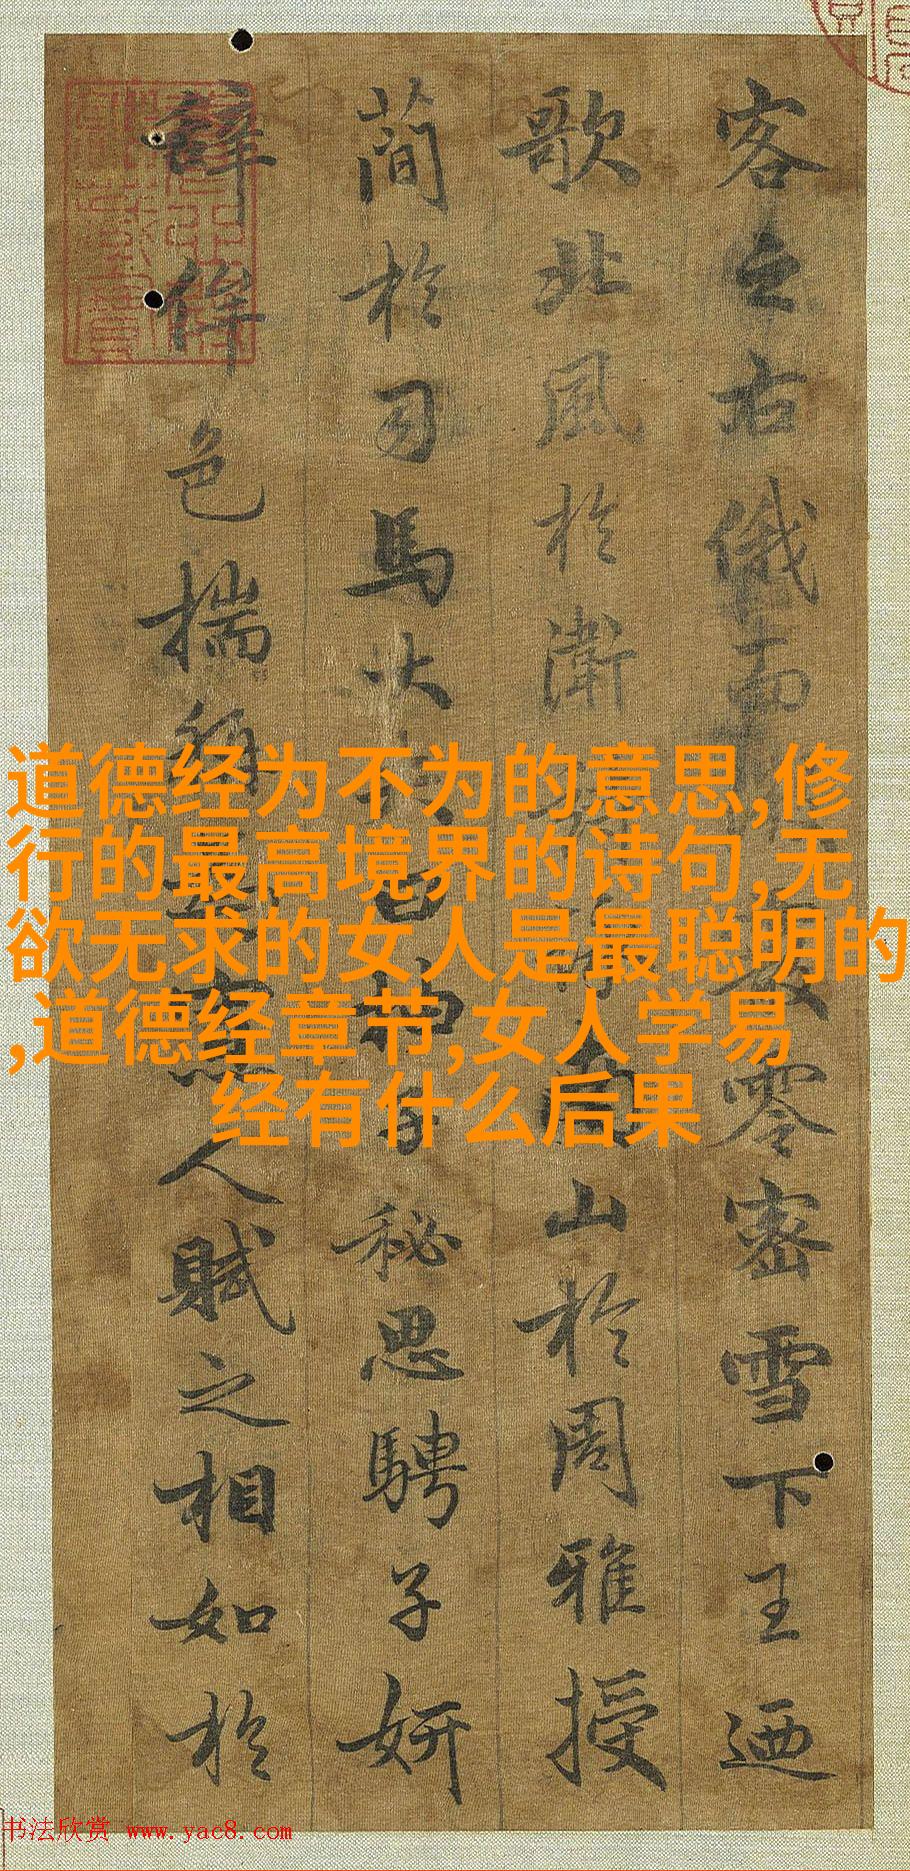 客之右俄而霰零密雪下王迺
歌北風於衛詠南山於周雅授
簡於司馬大曰抽子秘思騁子妍
辭侔色揣稱寡人賦之相如於
道德经为不为的意思,修
行的最高境界的诗句,无
欲无求的女人是最聪明的
,道德经章节,女人学易
经有什么后果
书法欣赏 www.yac8.com